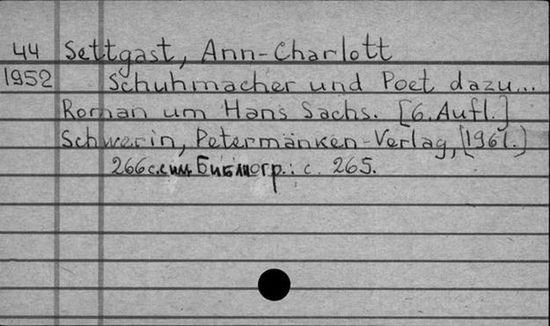 44 Settgast, Ann-Charlott
1952 Schuhmacher und Poet dazu...
Roman um Hans Sachs. [6. Aufl.]
Schwerin, Petermänken-Verlag, [1961.]
266 с. с илл. Библиогр.: с. 265.